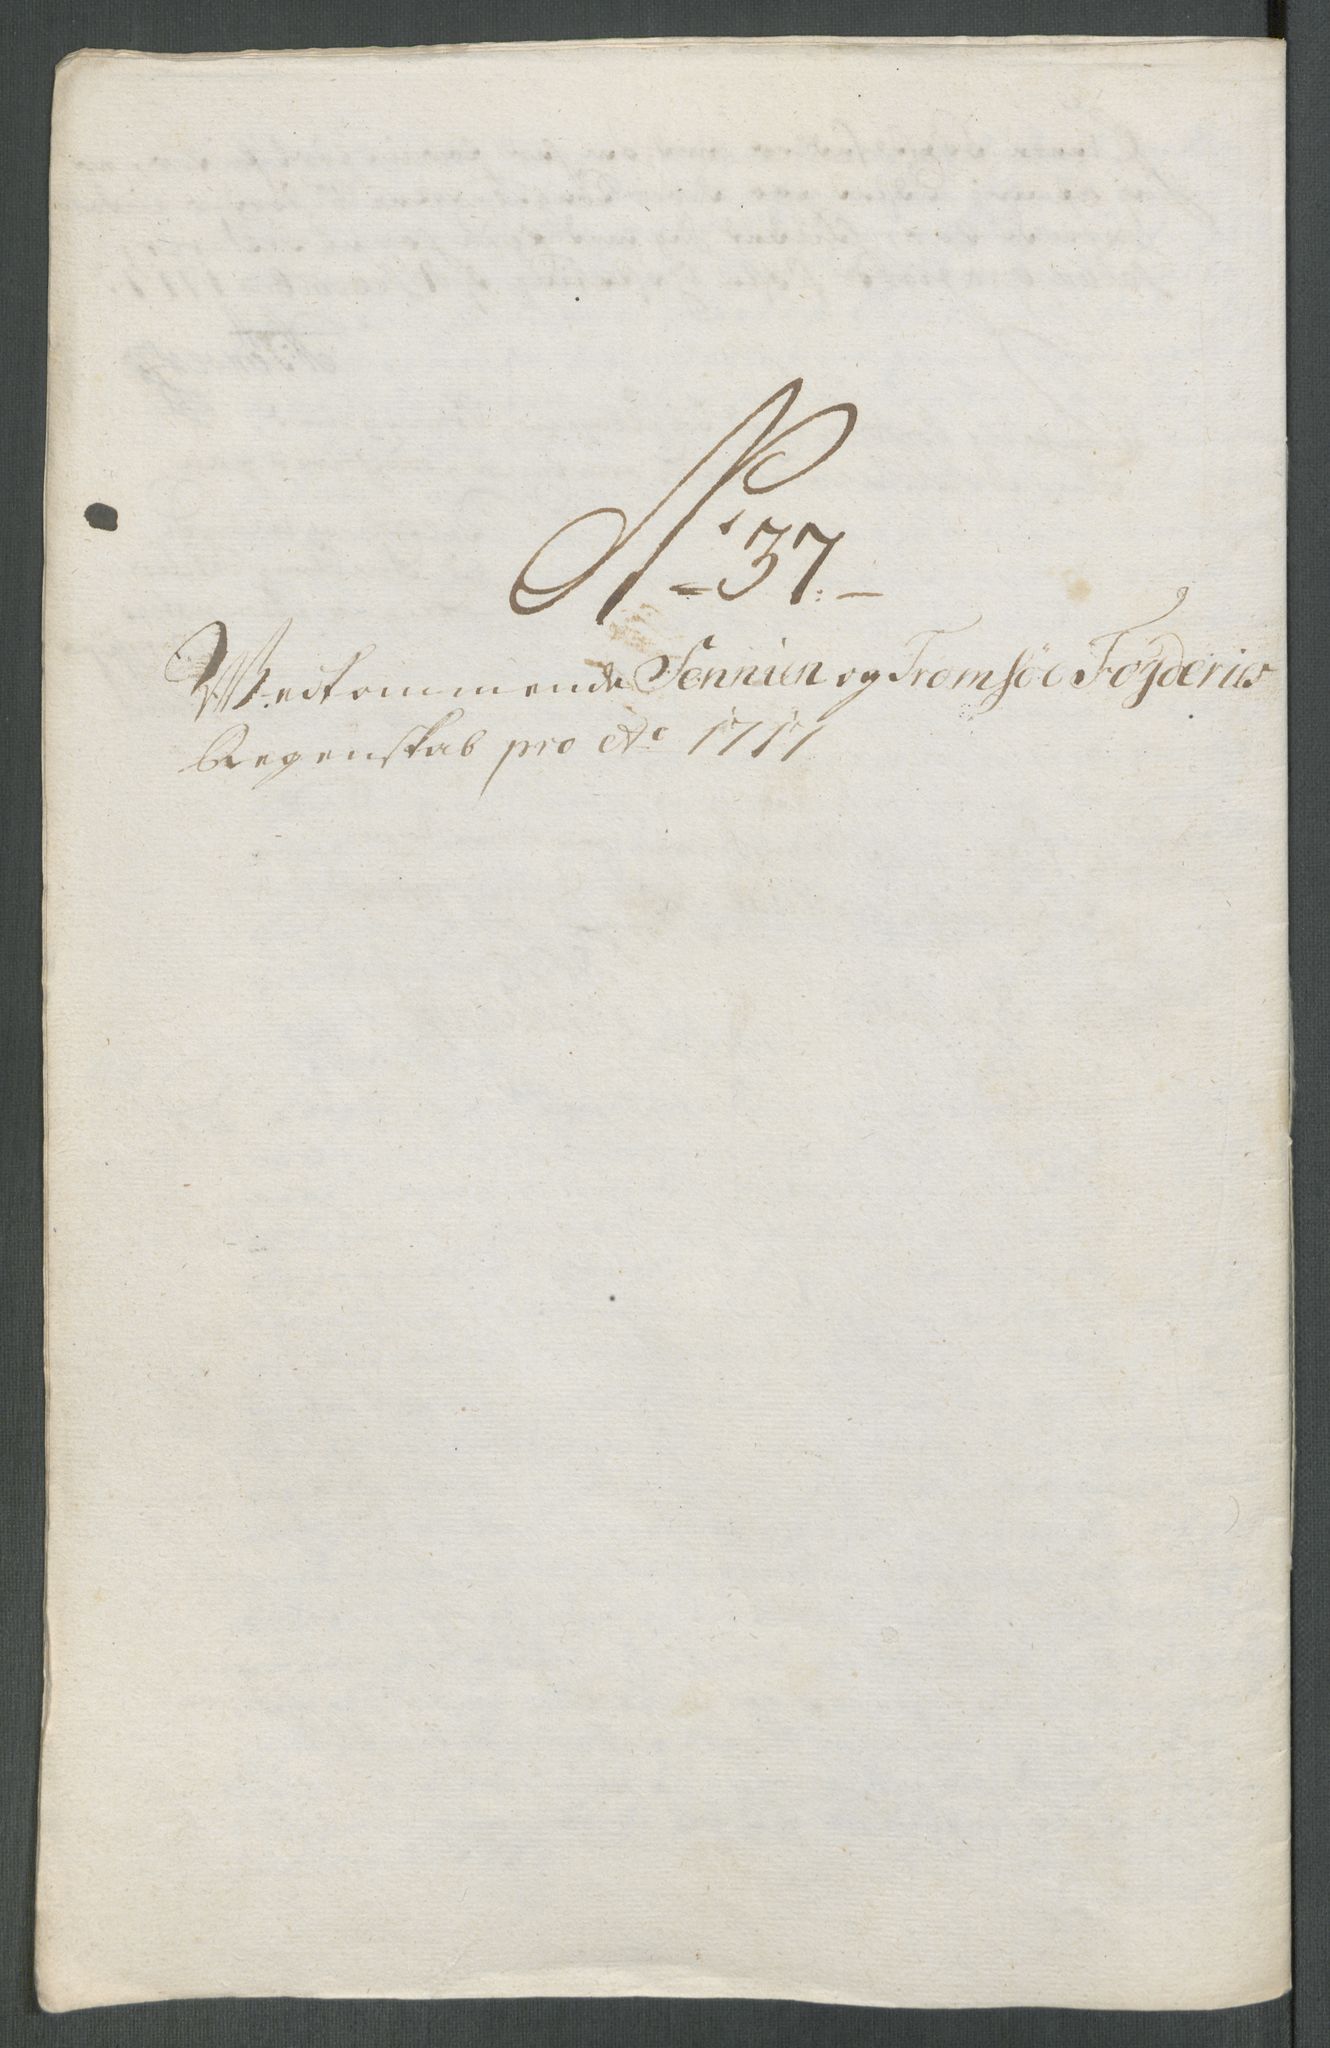 No 37
Wedkommende Sennien og Tromsöe Fogderies
Regenskab pro Ao 1717